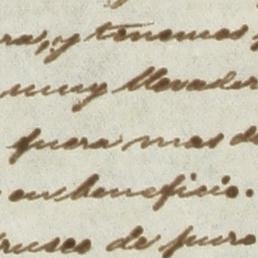 ras, y tenemos
muy llevader
fuera mas de
en beneficio.
rusco de puro